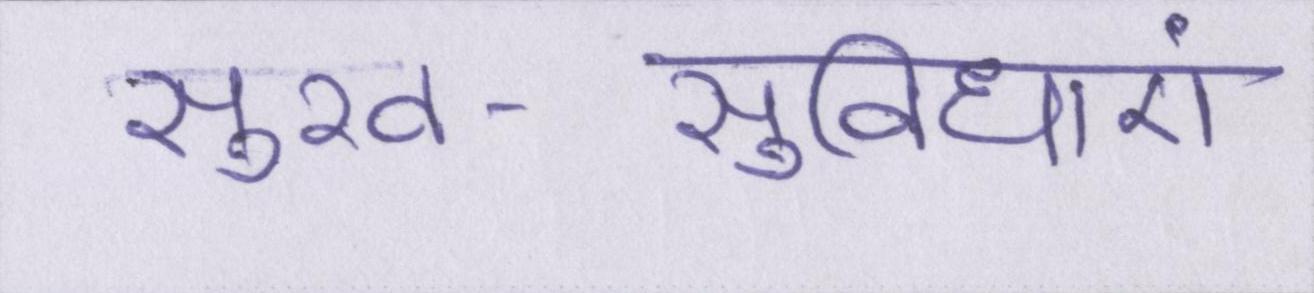 सुख- सुविधाएं